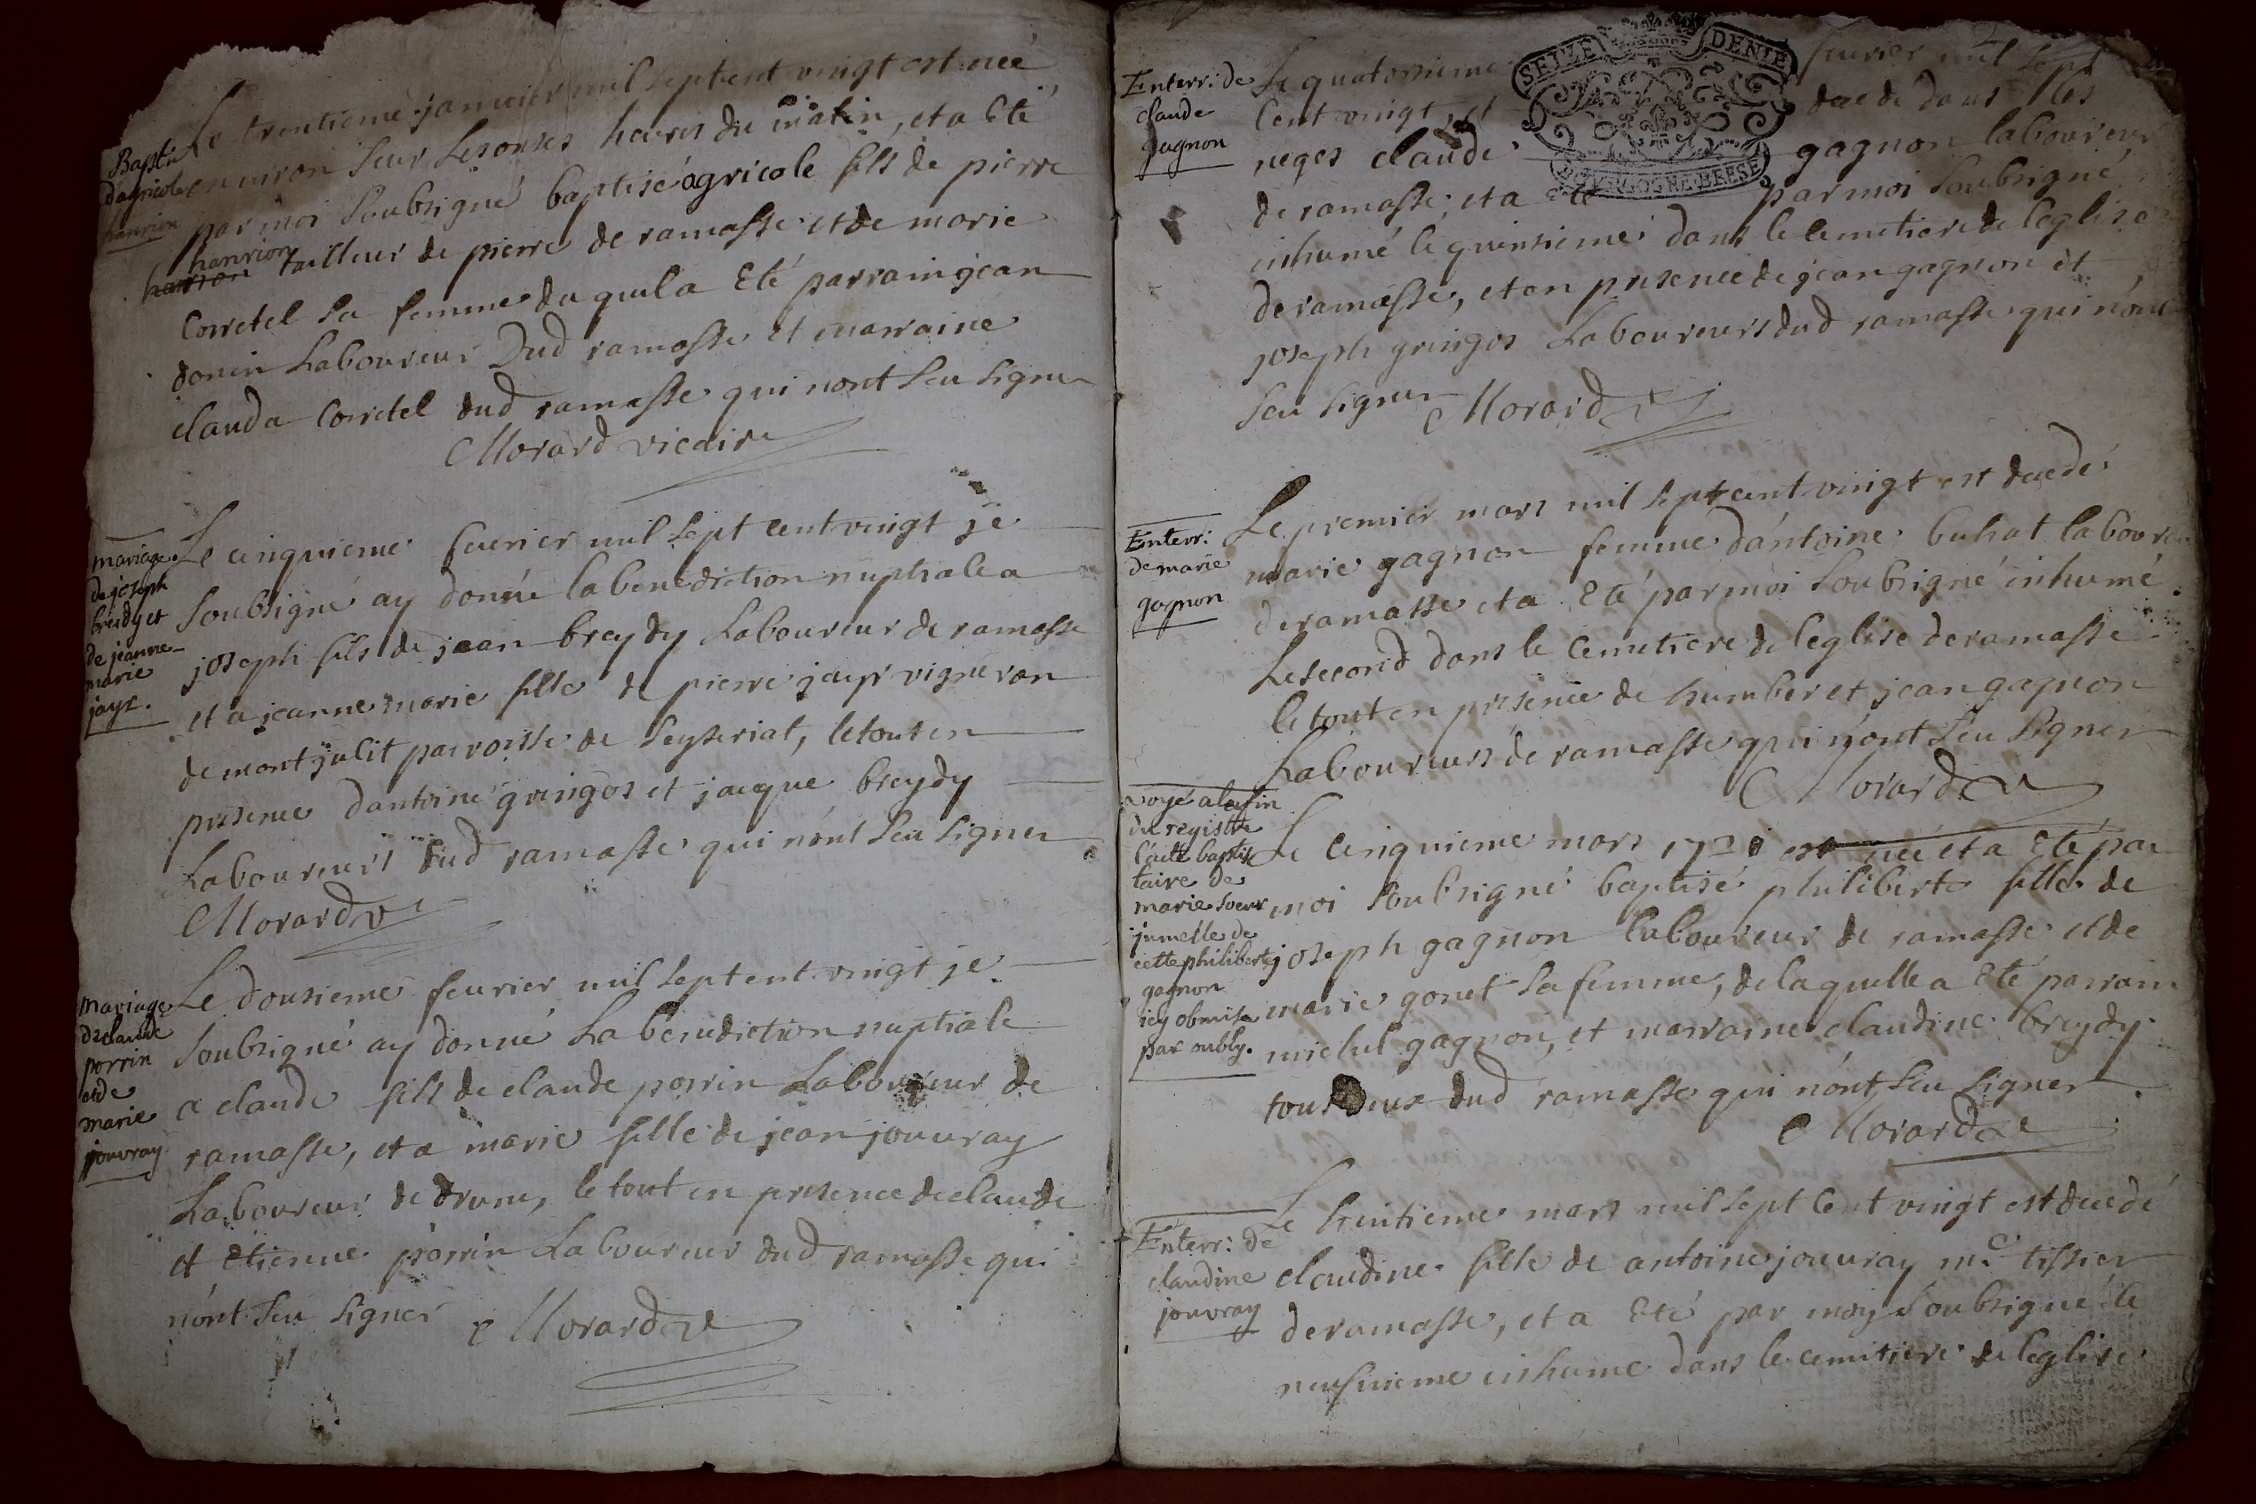 Baptê
d'agricole
hanrion
Le trentieme janvier mil sept cent vingt est neé
environ sur les onses heures du matin, et a Eté
par moi soubsigné baptisé agricole fils de pierre
hanrion
tailleur de pierre de ramasse et de marie
Corretel sa femme du quel a Eté parrain jean
donin Laboureur Dud ramasse et marraine
clauda Corretel dud ramasse qui nont seu signer
Morard vicaire
mariage
de joseph
breidy et
de jeanne
marie
jayr.
Le cinquieme feurier mil sept cent vingt je
soubsigné ay donné la benediction nuptiale a
joseph fils de jean breydy Laboureur de ramasse
et a jeanne marie fille de pierre jayr vigneron
de mont julit parroisse de Seyseriat, le tout en
presence dantoine gringos et jacque breydy
Laboureurs dud ramasse qui nont seu signer
Morard v
mariage
de claude
perrin
et de
marie
jouvray
Le dousieme feurier mil sept cent vingt je
soubsigné ay donné La bénédiction nuptiale
a claude fils de claude perrin Laboureur de
ramasse, et a marie fille de jean jouuray
Laboureur de drum, le tout en presence de claude
et Etienne perrin Laboureur dud ramasse qui
nónt seu signer
Morard v
Enterr: de
claude
gagnon
SEIZE DENIE
BOURGOGNE BRESSE
Le quatorsieme feurier mil sept
Cent vingt, est decede dans les
neges claude gagnon laboureur
de ramasse, et a Eté par moi soubsigné
inhumé le quinsieme dans le cemetiere de leglise
de ramasse, et en presence de jean gagnon et
joseph gringos Laboureurs dud ramasse qui nónt
seu signer Morard v
Enterr:
de marie
gagnon
Le premier mars mil sept cent vingt est decedé
marie gagnon femme dántoine buhat laboureur
de ramasse et a Eté par moi soubsigné inhumé
Le second dans le Cemetiere de leglise de ramasse
le tout en presence de humber et jean gagnon
Laboureurs de ramasse qui nónt seu signer
Morard v
voye a la fin
du registre
l'acte baptis
taire de
marie soeur
jumelle de
cette philiberte
gagnon
icy obmise
par oubly.
Le Cinquieme mars 1720 est neé et a Eté par
moi soubsigné baptisé philiberte fille de
joseph gagnon laboureur de ramasse et de
marie gonet sa femme, de laquelle a Eté parrain
michel gagnon, et marraine claudine breydy
tous deux dud ramasse qui nónt seu signer
Morard v
Enterr: de
claudine
jouvray
Le huitieme mars mil sept Cent vingt est decedé
claudine fille de antoine jouuray me tissier
de ramasse, et a Eté par moy soubsigné le
neufuieme inhumé dans le cemitiere de leglise